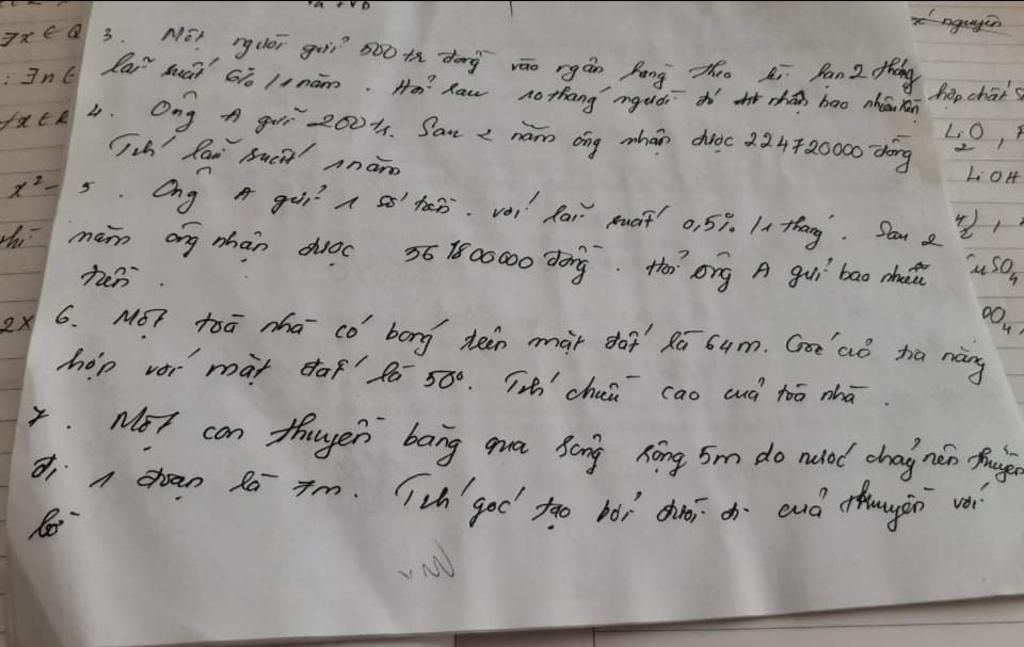 ∃x ∈ Q
: ∃n ∈
x² -
2x
3. Một người gửi 500 tr đồng vào ngân hàng theo kì hạn 2 tháng
lãi suất 6% /1 năm. Hỏi sau 10 tháng người đó nhận bao nhiêu tiền
4. Ông A gửi 200 tr. Sau 2 năm ông nhận được 224720000 đồng
Tính lãi suất 1 năm
5. Ông A gửi 1 số tiền. với lãi suất 0,5% /1 tháng. Sau 2
năm ông nhận được 561800000 đồng. Hỏi ông A gửi bao nhiêu
tiền.
6. Một toà nhà có bóng trên mặt đất là 64m. Góc của tia nắng
hợp với mặt đất là 50°. Tính chiều cao của toà nhà.
7. Một con thuyền băng qua sông rộng 5m do nước chảy nên thuyền
đi 1 đoạn là 7m. Tính góc tạo bởi đường đi của thuyền với
bờ
nguyên
hợp chất
Li₂O,
LiOH
SO₄